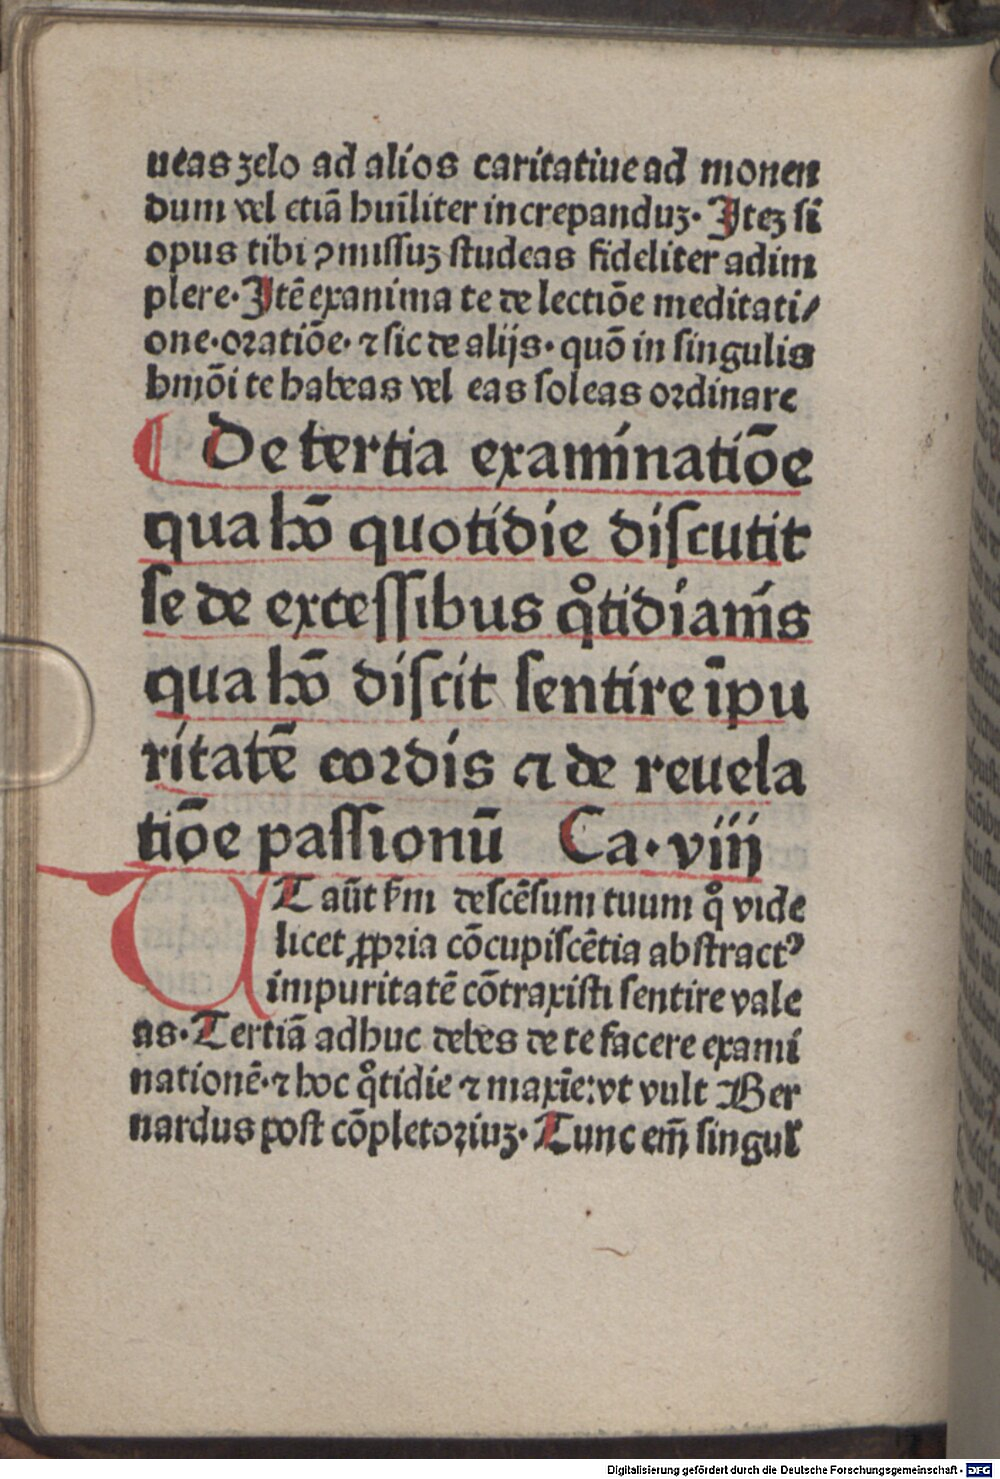 ueas zelo ad alios caritatiue ad monen
dum vel etiā huīliter increpanduz· Itez si
opus tibi ꝯmissuz studeas fideliter adim
plere· Itē examina te de lectiōe meditati/
one· oratiōe· ⁊ sic de alijs· quō in singulis
hmōi te habeas vel eas soleas ordinare
De tertia examinatiōe
qua hō quotidie discutit
se de excessibus qͦtidianis
qua hō discit sentire īpu
ritatē cordis ⁊ de reuela
tiōe passionū Ca· viij
UT aūt km descēsum tuum qͦ vide
licet ꝓpria cōcupiscētia abstractꝰ
impuritatē cōtraxisti sentire vale
as· Tertiā adhuc debes de te facere exami
nationē· ⁊ hoc qͦtidie ⁊ maxīe: vt vult Ber
nardus post cōpletoriuz· Tunc em̄ singul
Digitalisierung gefördert durch die Deutsche Forschungsgemeinschaft - DFG